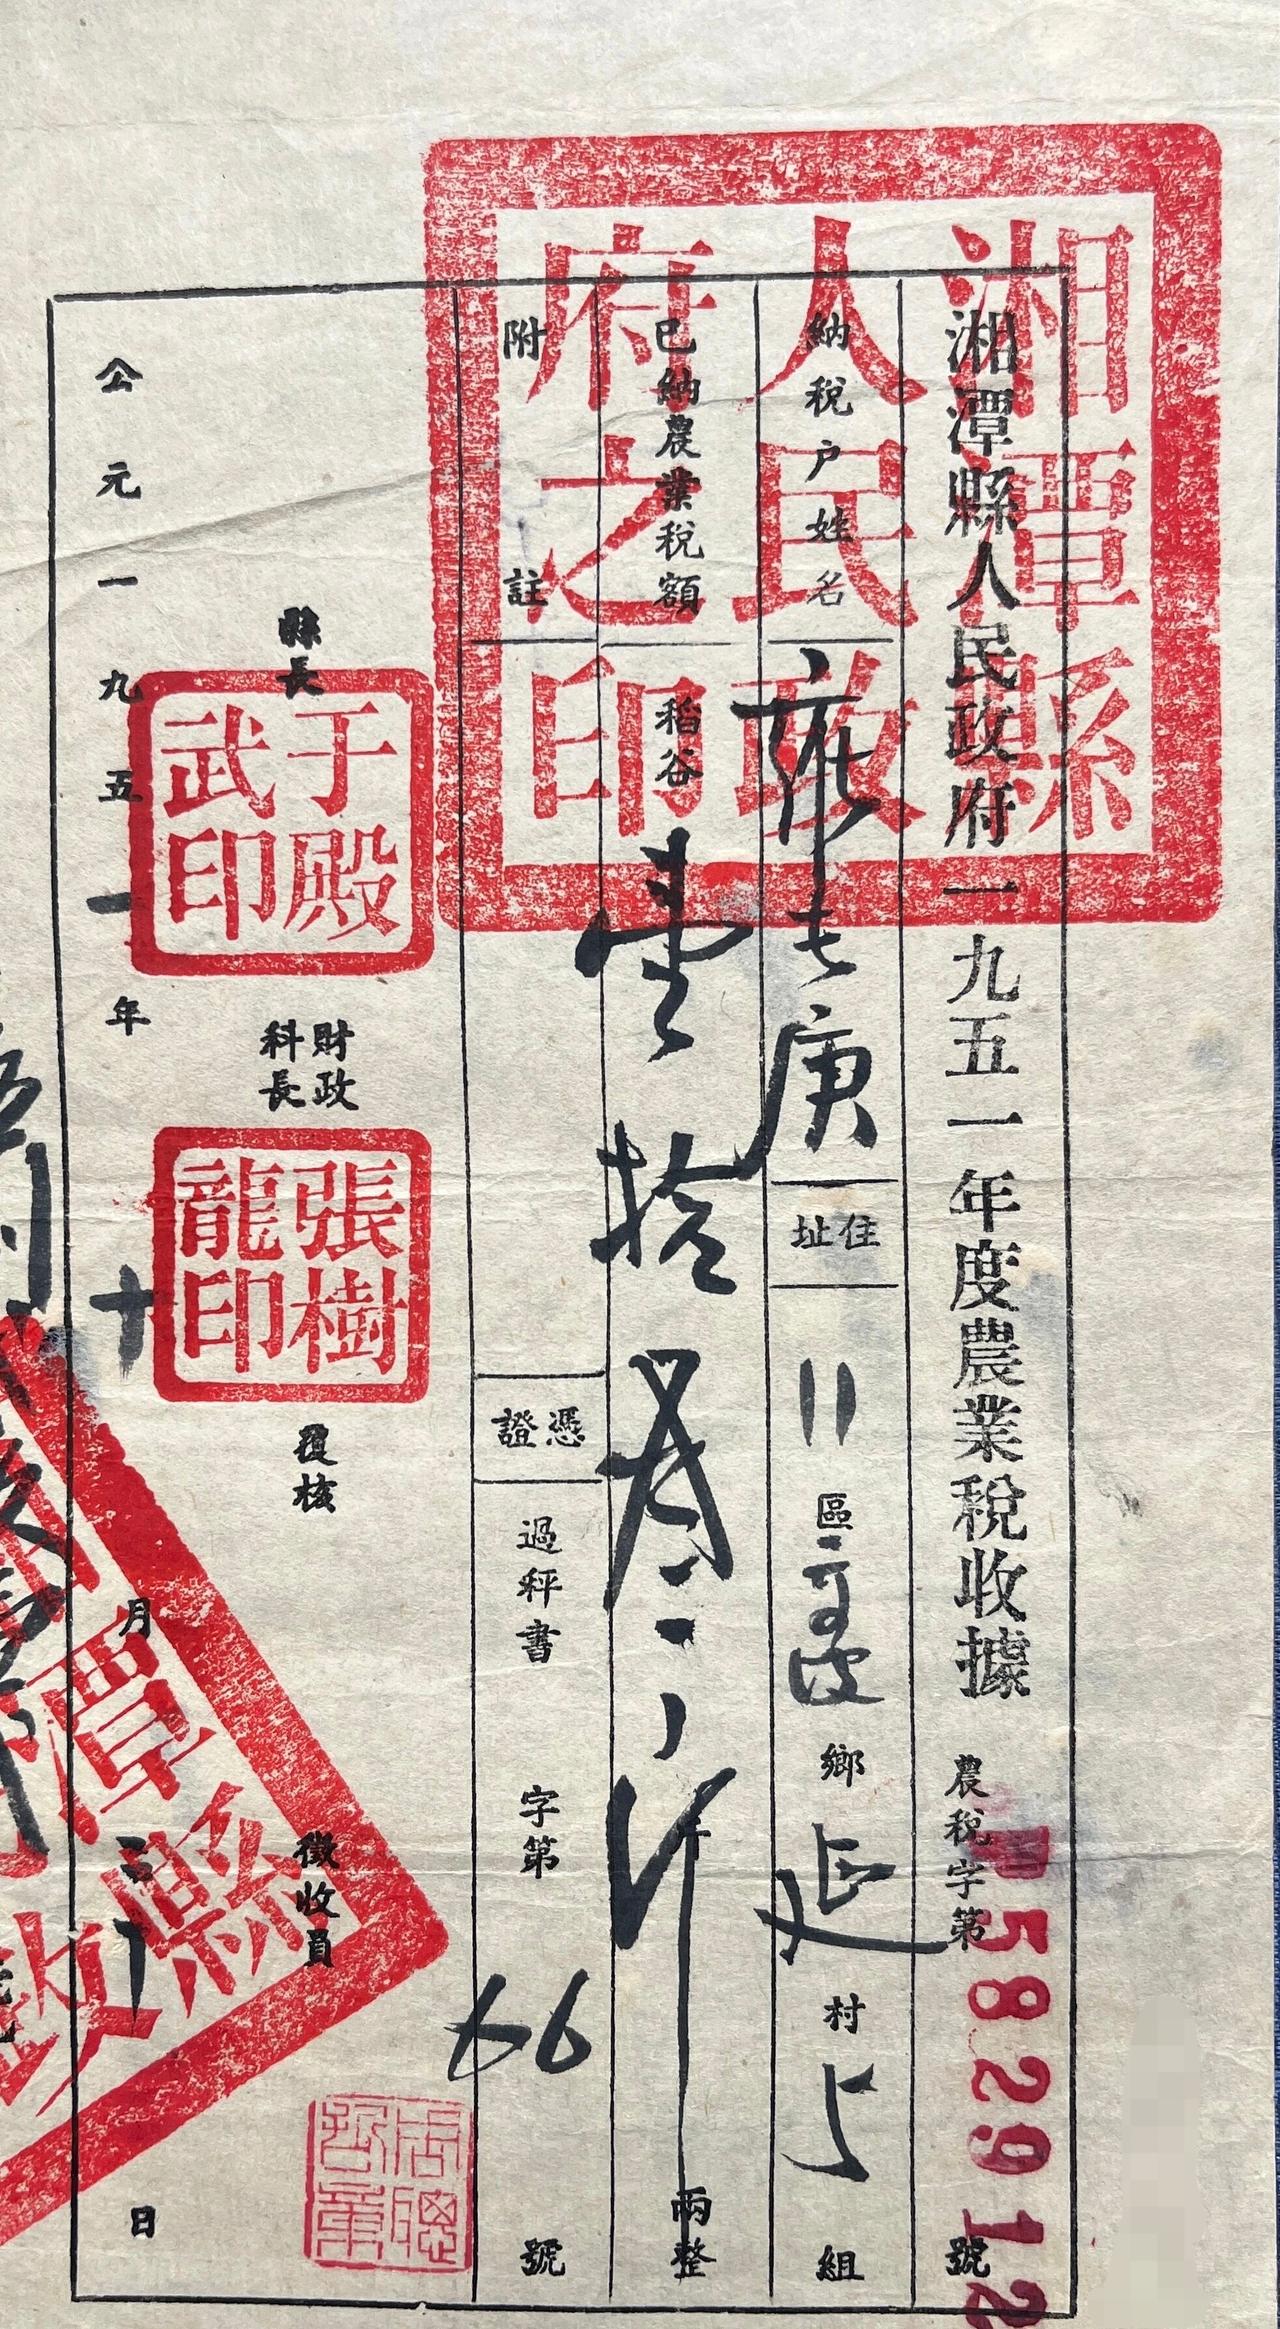 湘潭縣人民政府一九五一年度農業稅收據 農稅字第 582912 號
湘潭縣
人民政
府之印
納稅戶姓名 庚 住址 11 區 鄉 延 村 5 組
已納農業稅額 稻谷 壹拾叁 斤 兩整
附註 憑證 過秤書 字第 66 號
縣長 財政科長 覆核 徵收員
于殿
武印
張樹
龍印
公元一九五一年 十 月 日
潭縣
政